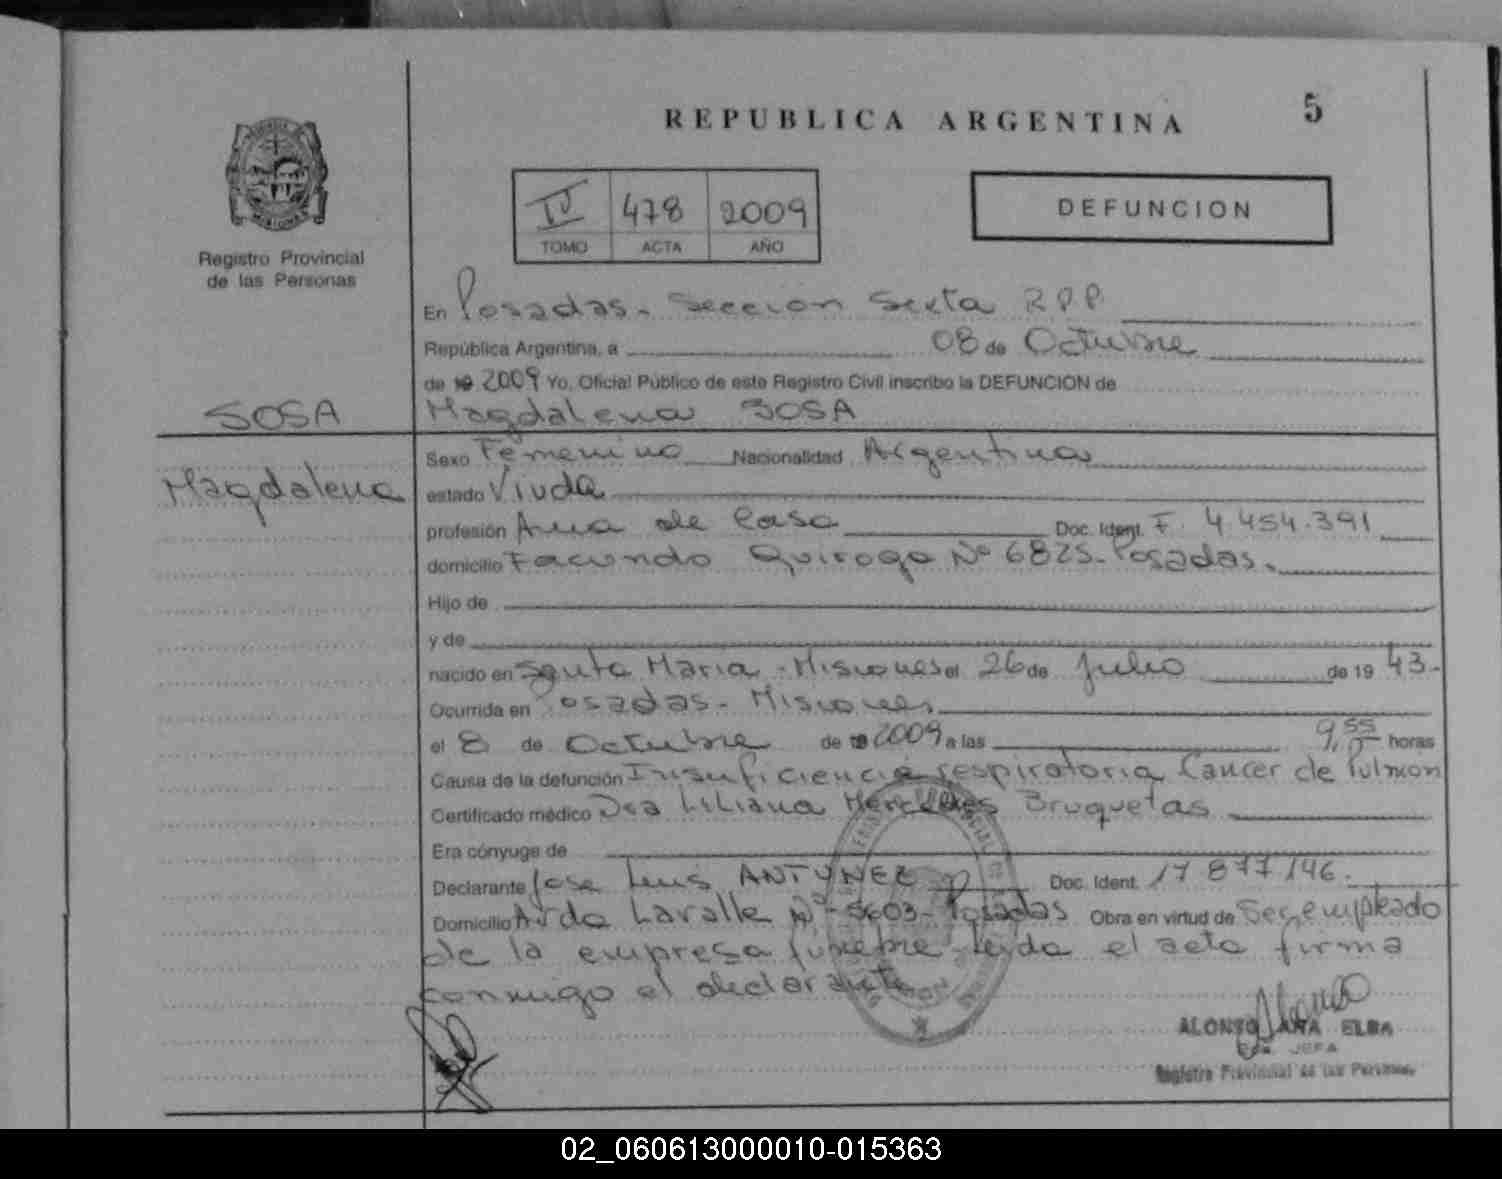 REPUBLICA ARGENTINA
5
Registro Provincial
de las Personas
IV 478 2009
TOMO ACTA AÑO
DEFUNCION
En Posadas. Sección Sexta R.P.P.
República Argentina, a 08 de Octubre
de 19 2009 Yo, Oficial Público de este Registro Civil inscribo la DEFUNCION de
SOSA
Magdalena SOSA
Magdalena
Sexo Femenino Nacionalidad Argentina
estado Viuda
profesión Ama de Casa Doc. Ident. F. 4.454.391
domicilio Facundo Quiroga Nº 6825- Posadas.
Hijo de
y de
nacido en Santa María - Misiones el 26 de Julio de 19 43-
Ocurrida en Posadas - Misiones
el 8 de Octubre de 19 2009 a las 9,55 horas
Causa de la defunción Insuficiencia respiratoria Cancer de Pulmon
Certificado médico Dra Liliana Mercedes Bruquetas
Era cónyuge de
Declarante Jose Luis ANTUNEZ Doc. Ident. 17 877 146.
Domicilio Avda Lavalle Nº 5603- Posadas Obra en virtud de Ser empleado
de la empresa funebre leida el acta firma
conmigo el declarante
ALONSO ANA ELBA
JEFA
Registro Provincial de las Personas
02_060613000010-015363